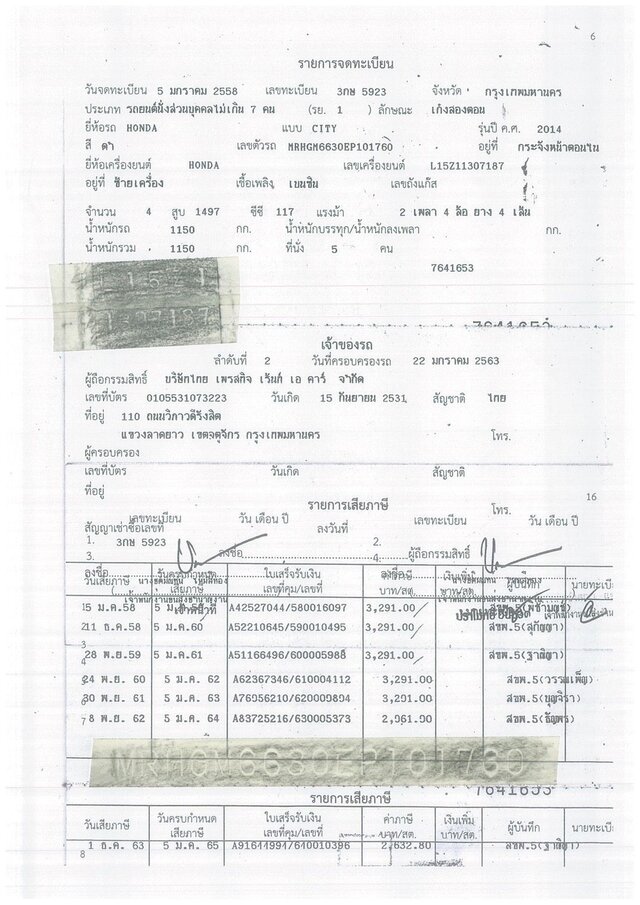 6
รายการจดทะเบียน
วันจดทะเบียน 5 มกราคม 2558 เลขทะเบียน 3กษ 5923 จังหวัด กรุงเทพมหานคร
ประเภท รถยนต์นั่งส่วนบุคคลไม่เกิน 7 คน (รย. 1 ) ลักษณะ เก๋งสองตอน
ยี่ห้อรถ HONDA แบบ CITY รุ่นปี ค.ศ. 2014
สี ดำ เลขตัวรถ MRHGM6630EP101760 อยู่ที่ กระจังหน้าตอนใน
ยี่ห้อเครื่องยนต์ HONDA เลขเครื่องยนต์ L15Z11307187
อยู่ที่ ซ้ายเครื่อง เชื้อเพลิง เบนซิน เลขถังแก๊ส
จำนวน 4 สูบ 1497 ซีซี 117 แรงม้า 2 เพลา 4 ล้อ ยาง 4 เส้น
น้ำหนักรถ 1150 กก. น้ำหนักบรรทุก/น้ำหนักลงเพลา กก.
น้ำหนักรวม 1150 กก. ที่นั่ง 5 คน
7641653
7641653
เจ้าของรถ
ลำดับที่ 2 วันที่ครอบครองรถ 22 มกราคม 2563
ผู้ถือกรรมสิทธิ์ บริษัทไทย เพรสทิจ เร้นท์ เอ คาร์ จำกัด
เลขที่บัตร 0105531073223 วันเกิด 15 กันยายน 2531 สัญชาติ ไทย
ที่อยู่ 110 ถนนวิภาวดีรังสิต
แขวงลาดยาว เขตจตุจักร กรุงเทพมหานคร โทร.
ผู้ครอบครอง
เลขที่บัตร วันเกิด สัญชาติ
ที่อยู่ 16
รายการเสียภาษี โทร.
เลขทะเบียน วัน เดือน ปี เลขทะเบียน วัน เดือน ปี
สัญญาเช่าซื้อเลขที่ ลงวันที่
1. 3กษ 5923 2.
3. ลงชื่อ 4. ผู้ถือกรรมสิทธิ์
วันเสียภาษี วันครบกำหนดเสียภาษี ใบเสร็จรับเงิน เล่มที่คุม/เลขที่ ค่าภาษี บาท/สต. เงินเพิ่ม บาท/สต. ผู้บันทึก นายทะเบียน
5 ม.ค.58 A42527044/580016097 3,291.00
11 ธ.ค.58 5 ม.ค.60 A52210645/590010495 3,291.00 สขพ.5(สุกัญญา)
28 พ.ย.59 5 ม.ค.61 A51166496/600005988 3,291.00 สขพ.5(ฐาณิญา)
24 พ.ย. 60 5 ม.ค. 62 A62367346/610004112 3,291.00 สขพ.5(วรรณเพ็ญ)
30 พ.ย. 61 5 ม.ค. 63 A76956210/620009894 3,291.00 สขพ.5(บุญจิรา)
8 พ.ย. 62 5 ม.ค. 64 A83725216/630005373 2,961.00 สขพ.5(ธัญพร)
MRHGM6630EP101760
7641653
รายการเสียภาษี
วันเสียภาษี วันครบกำหนดเสียภาษี ใบเสร็จรับเงิน เล่มที่คุม/เลขที่ ค่าภาษี บาท/สต. เงินเพิ่ม บาท/สต. ผู้บันทึก นายทะเบียน
1 ธ.ค. 63 5 ม.ค. 65 A91644994/640010396 2,632.80
8